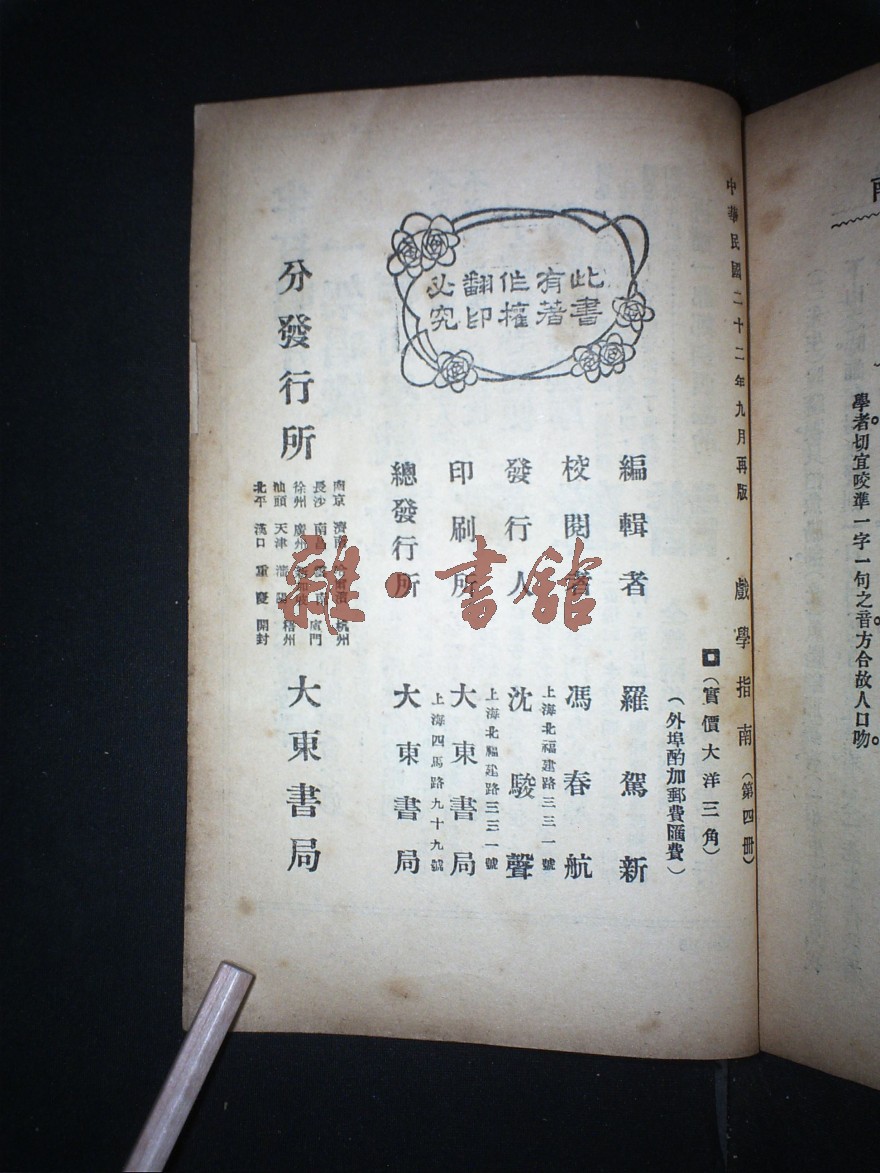 學者切宜咬準一字一句之音。方合故人口吻。
中華民國二十二年九月再版
戲學指南(第四冊)
(實價大洋三角)
(外埠酌加郵費匯費)
此書
有著
作權
翻印
必究
編輯者 羅駕新
校閱者 馮春航
上海北福建路三三一號
發行人 沈駿聲
上海北福建路三三一號
印刷所 大東書局
上海四馬路九十九號
總發行所 大東書局
分發行所
南京 濟南 杭州
長沙 南昌 廈門
徐州 廣州
汕頭 天津 瀋陽 梧州
北平 漢口 重慶 開封
大東書局
雜·書館